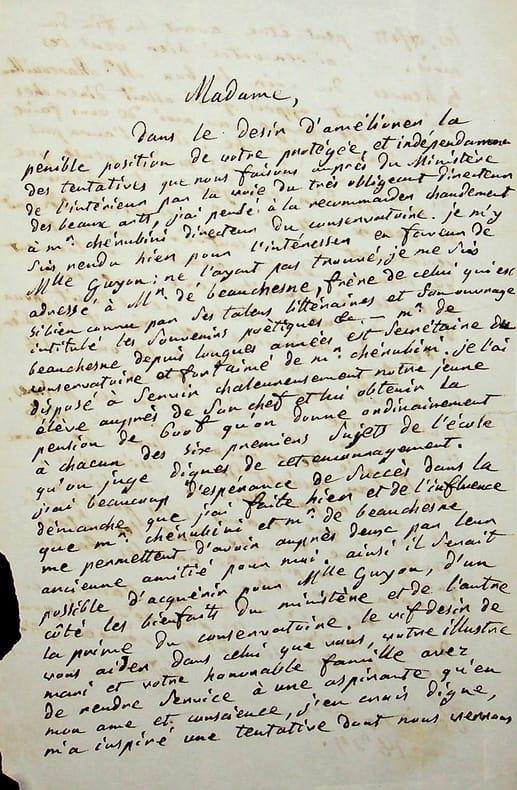 Madame,
Dans le desir d'améliorer la
pénible position de votre protégée, et indépendamment
des tentatives que nous faisons auprès du Ministère
de l'intérieur par la voie du très obligeant directeur
des beaux arts, j'ai pensé à la recommander chaudement
à mr. chérubini directeur du conservatoire. je m'y
suis rendu hier pour l'intéresser en faveur de
Mlle Guyon; ne l'ayant pas trouvé, je me suis
adressé à Mr. de beauchesne, frère de celui qui est
si bien connu par ses talens littéraires et son ouvrage
intitulé les Souvenirs poëtiques &c — mr. de
beauchesne depuis longues années est Secrétaire du
conservatoire et fort aimé de mr. chérubini. je l'ai
disposé à Servir chaleureusement notre jeune
élève auprès de Son chef et lui obtenir la
pension de 600f qu'on donne ordinairement
à chacun des six premiers Sujets de l'école
qu'on juge dignes de cet encouragement.
j'ai beaucoup d'espérance de Succès dans la
démarche que j'ai faite hier et de l'influence
que mr. chérubini et mr. de beauchesne
me permettent d'avoir auprès d'eux par leur
ancienne amitié pour moi. ainsi il Serait
possible d'acquérir pour Mlle Guyon, d'un
côté les bienfaits du ministère et de l'autre
la prime du conservatoire. le vif desir de
vous aider dans celui que vous, votre illustre
mari et votre honorable famille avez
de rendre Service à une aspirante qu'en
mon ame et conscience, j'en crois digne,
m'a inspiré une tentative dont nous verrons